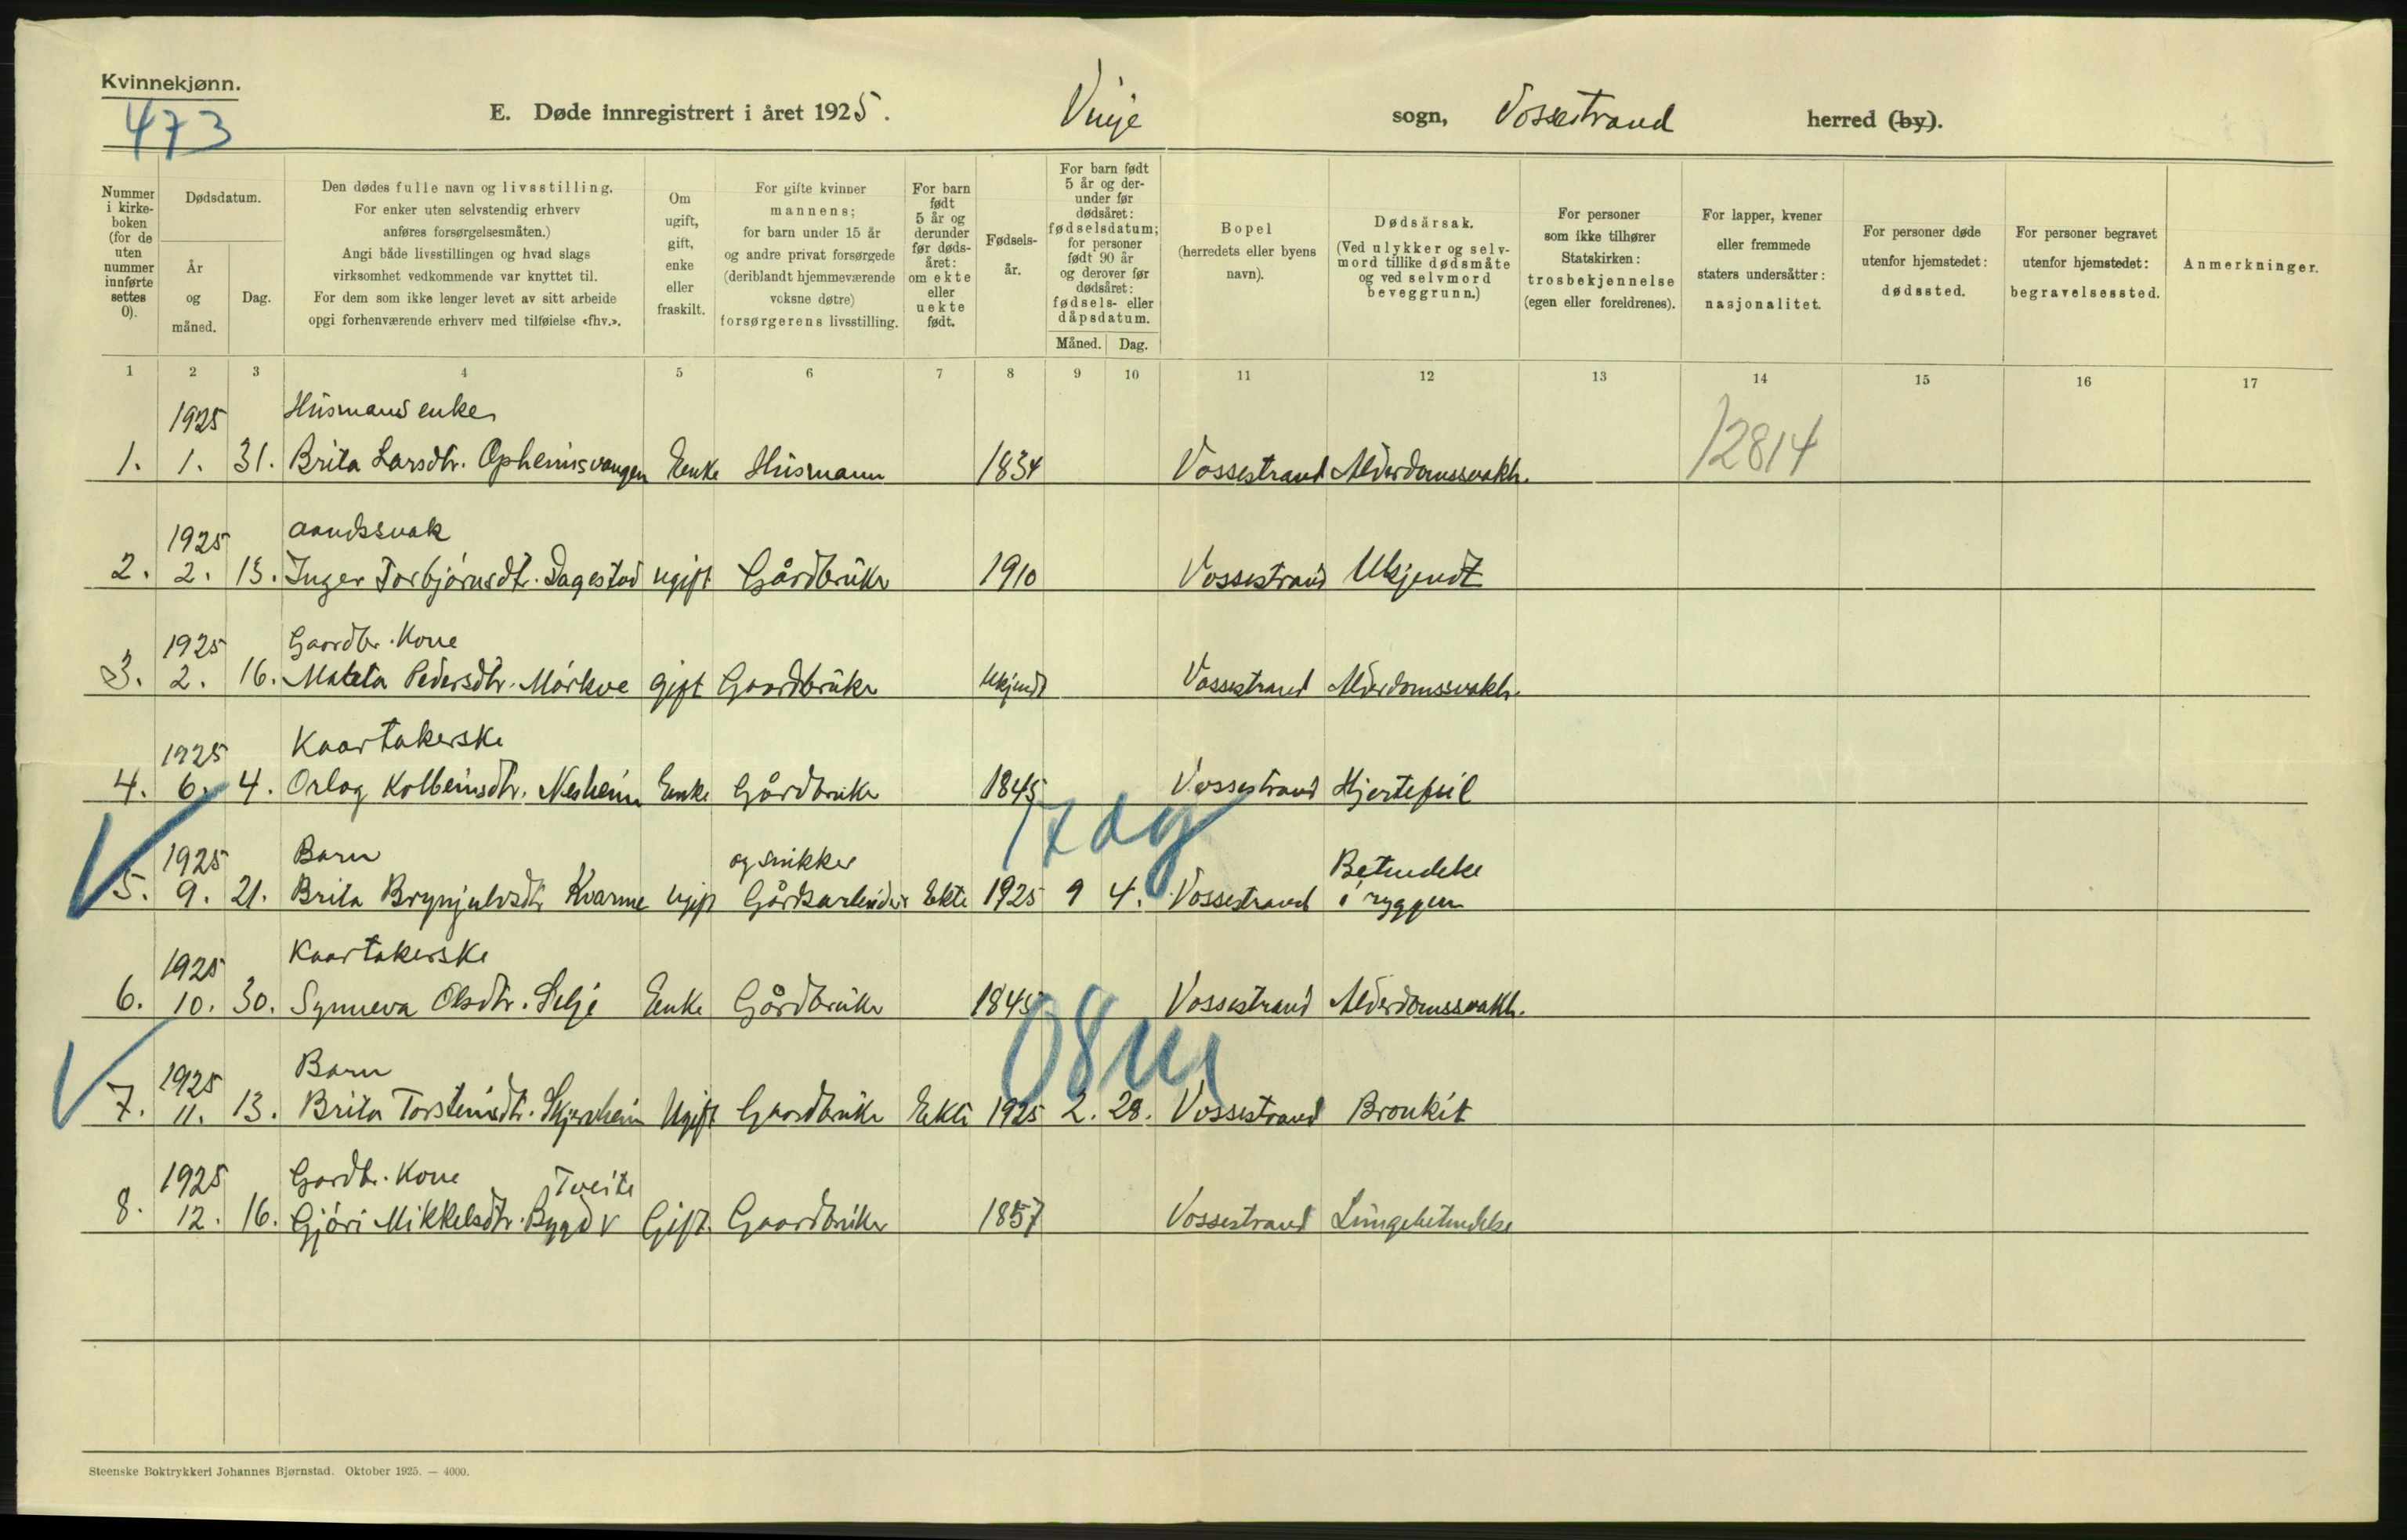 Kvinnekjønn.
473
E. Døde innregistrert i året 1925. Vinje sogn, Vossestrand herred (by).
Nummer i kirkeboken (for de uten nummer innførte settes 0).
Dødsdatum.
År og måned.
Dag.
Den dødes fulle navn og livsstilling.
For enker uten selvstendig erhverv anføres forsørgelsesmåten.)
Angi både livsstillingen og hvad slags virksomhet vedkommende var knyttet til.
For dem som ikke lenger levet av sitt arbeide opgi forhenværende erhverv med tilføielse «fhv.».
Om ugift, gift, enke eller fraskilt.
For gifte kvinner mannens; for barn under 15 år og andre privat forsørgede (deriblandt hjemmeværende voksne døtre) forsørgerens livsstilling.
For barn født 5 år og derunder før dødsåret: om ekte eller uekte født.
Fødselsår.
For barn født 5 år og derunder før dødsåret: fødselsdatum; for personer født 90 år og derover før dødsåret: fødsels- eller dåpsdatum.
Måned. Dag.
Bopel (herredets eller byens navn).
Dødsårsak.
(Ved ulykker og selvmord tillike dødsmåte og ved selvmord beveggrunn.)
For personer som ikke tilhører Statskirken: trosbekjennelse (egen eller foreldrenes).
For lapper, kvener eller fremmede staters undersåtter: nasjonalitet.
For personer døde utenfor hjemstedet: dødssted.
For personer begravet utenfor hjemstedet: begravelsessted.
Anmerkninger.
1 2 3 4 5 6 7 8 9 10 11 12 13 14 15 16 17
1925 Husmands enke
1. 1. 31. Brita Larsdtr. Opheimsvangen Enke Husmann 1834 Vossestrand Alderdomssvakh. 12814
1925 aandssvak
2. 2. 13. Inger Torbjørnsdtr. Dagestad ugift Gårdbruker 1910 Vossestrand Ukjendt
1925 Gaardbr. Kone
3. 2. 16. Pedersdtr. Mørkve gift Gaardbruker Ukjendt Vossestrand Alderdomssvakh.
1925 Kaartakerske
4. 6. 4. Orlog Kolbeinsdtr. Nesheim Enke Gårdbruker 1845 Vossestrand Hjertefeil
17 dg
1925 Barn og snikker Betendelse
5. 9. 21. Brita Brynjulvsdtr. Kvarme Ugift Gårdsarbeider Ekte 1925 9 4. Vossestrand i ryggen
1925 Kaartakerske
6. 10. 30. Synneva Olsdtr. Selje Enke Gårdbruker 1845 Vossestrand Alderdomssvakh.
08 m
1925 Barn
7. 11. 13. Brita Torsteinsdtr. Skjerheim Ugift Gaardbruker Ekte 1925 2. 28. Vossestrand Bronkit
1925 Gardbr. Kone Tveite
8. 12. 16. Gjøri Mikkelsdtr. Bygd v Gift. Gaardbruker 1857 Vossestrand Lungebetendelse
Steenske Boktrykkeri Johannes Bjørnstad. Oktober 1925. — 4000.